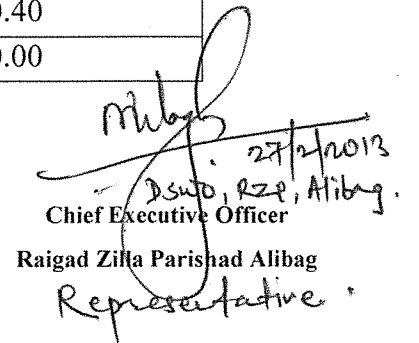 .40
.00
27/2/2013
DSWO, RZP, Alibag.
Chief Executive Officer
Raigad Zilla Parishad Alibag
Representative.